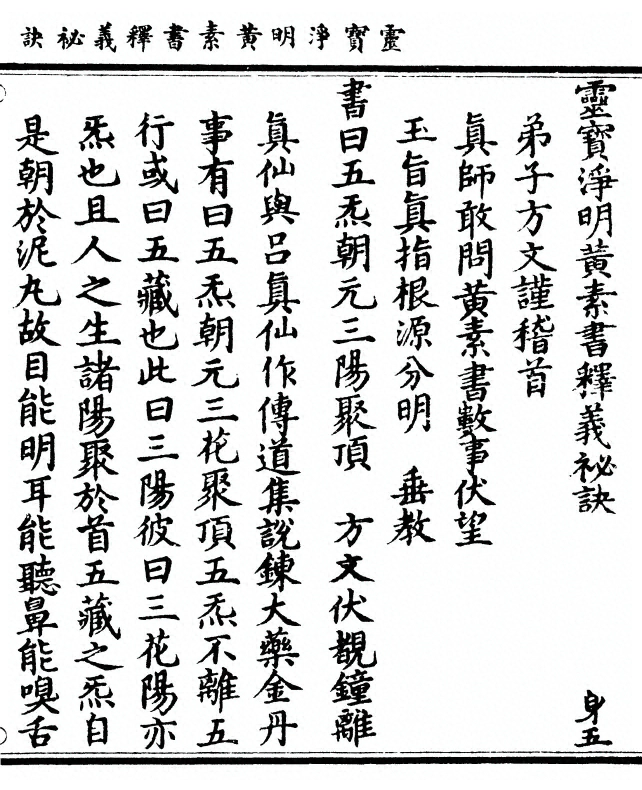 靈寶淨明黃素書釋義祕訣
靈寶淨明黃素書釋義祕訣 身五
弟子方文謹稽首
眞師敢問黃素書數事伏望
玉旨眞指根源分明 垂教
書曰五炁朝元三陽聚頂 方文伏覩鐘離
眞仙與呂眞仙作傳道集說鍊大藥金丹
事有曰五炁朝元三花聚頂五炁不離五
行或曰五藏也此曰三陽彼曰三花陽亦
炁也且人之生諸陽聚於首五藏之炁自
是朝於泥丸故目能明耳能聽鼻能嗅舌